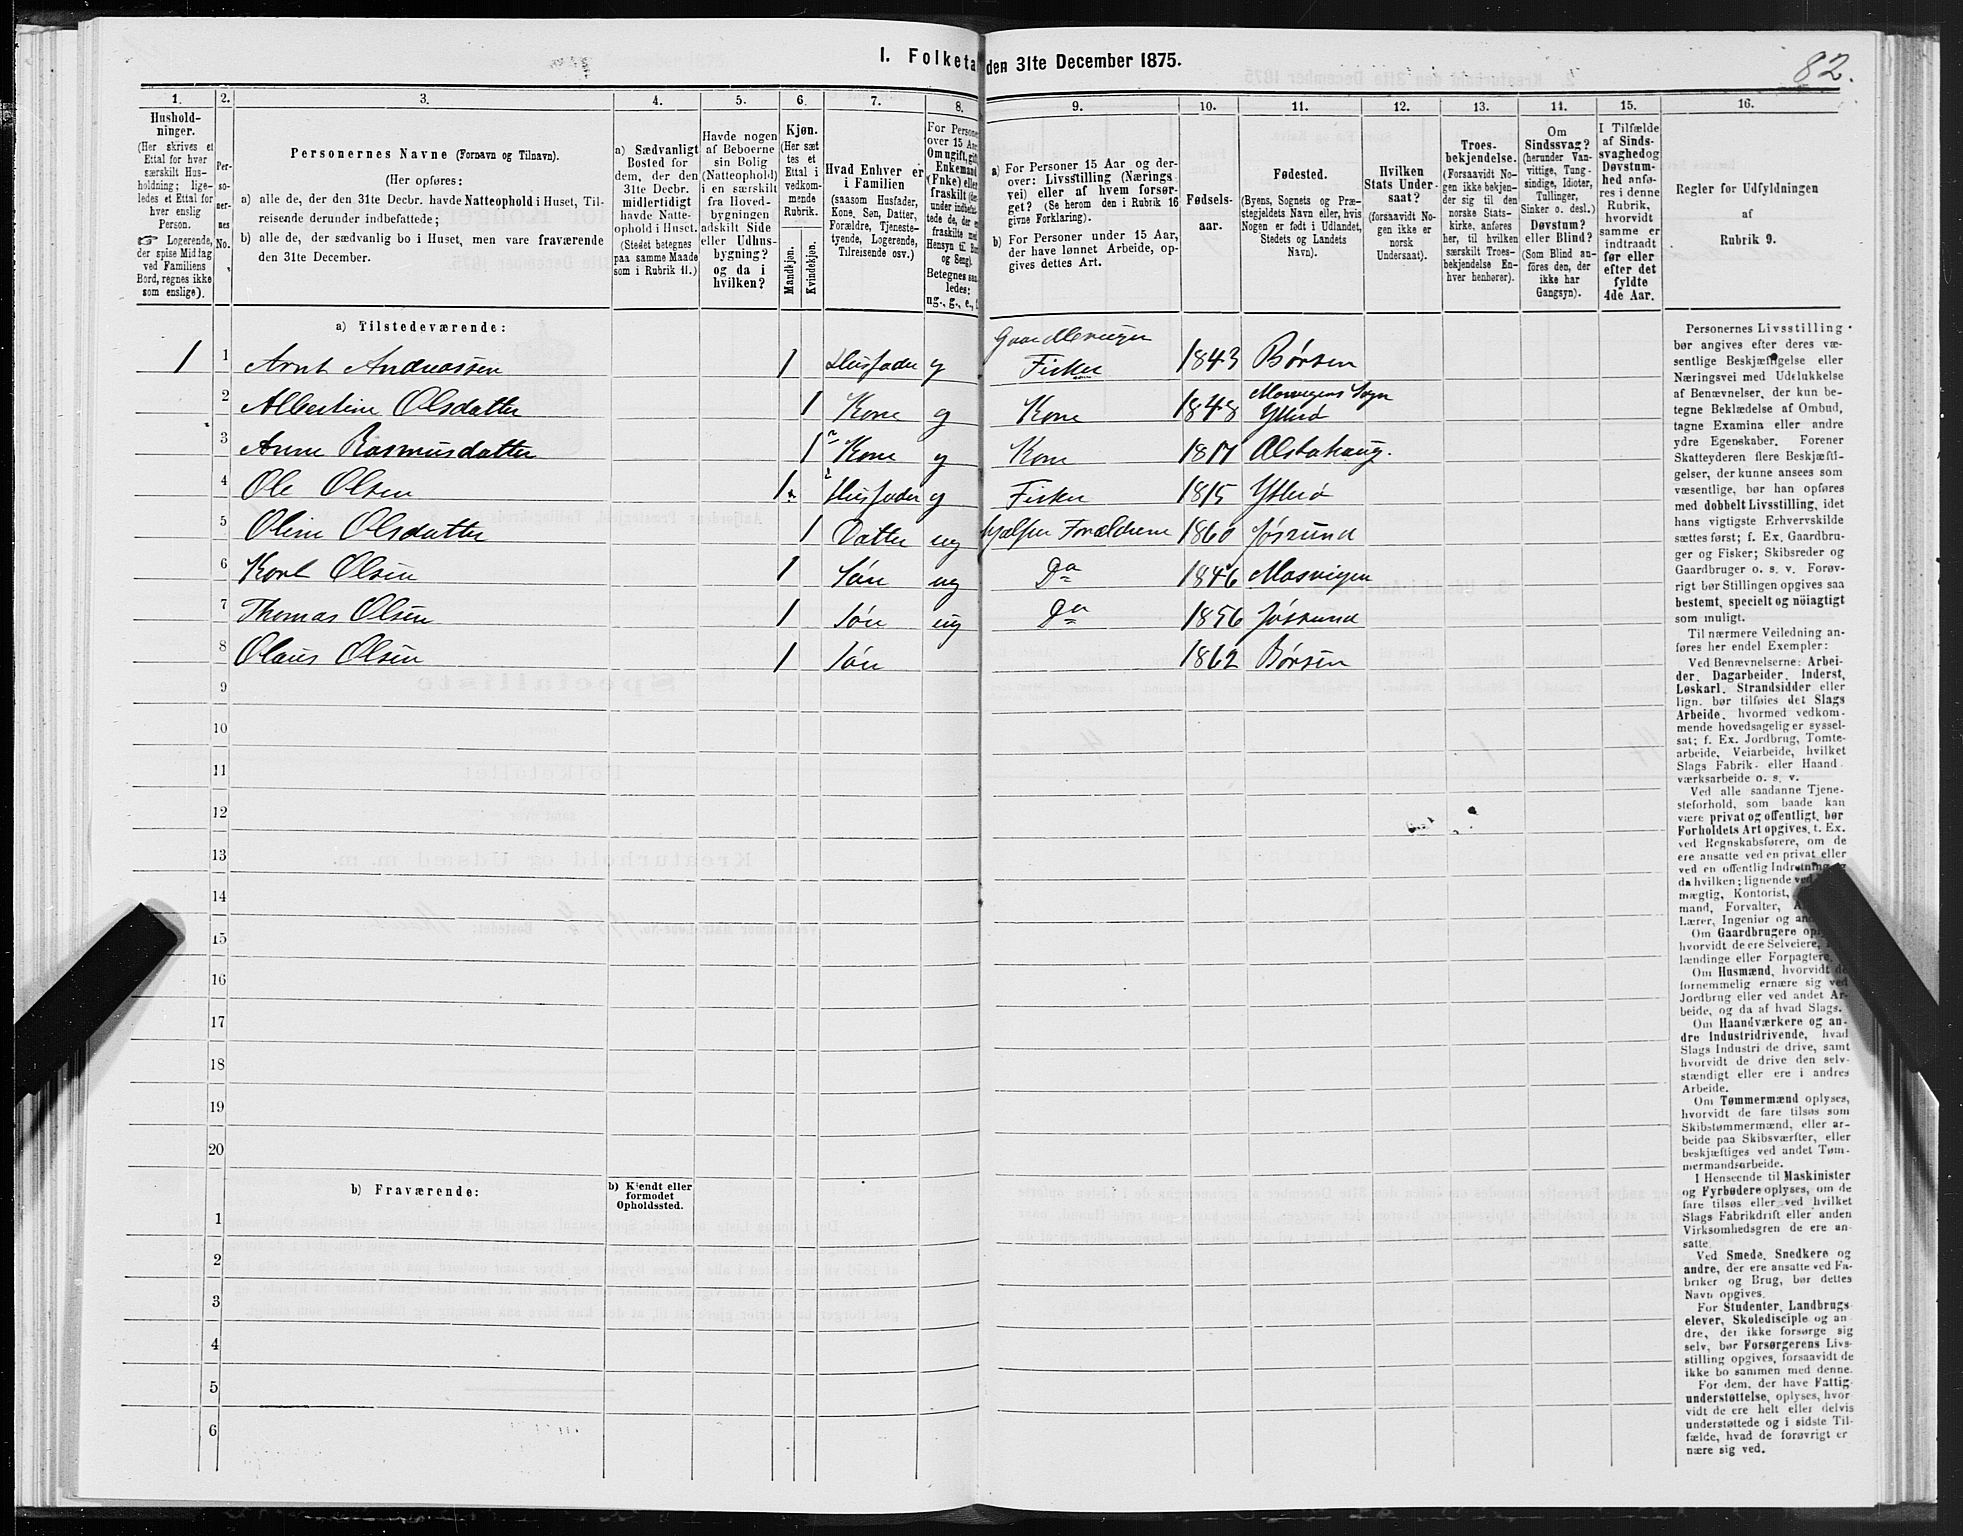 I. Folketa den 31te December 1875.
82.
1. 2. 3. 4. 5. 6. 7. 8. 9. 10. 11. 12. 13. 14. 15. 16.
Hushold-
ninger.
(Her skrives et
Ettal for hver
særskilt Hus-
holdning; lige-
ledes et Ettal for
hver enslig
Person.
☞ Logerende,
der spise Middag
ved Familiens
Bord, regnes ikke
som enslige).
Per-
so-
ner-
nes
No.
Personernes Navne (Fornavn og Tilnavn).
(Her opføres:
a) alle de, der den 31te Decbr. havde Natteophold i Huset, Til-
reisende derunder indbefattede;
b) alle de, der sædvanlig bo i Huset, men vare fraværende
den 31te December.
a) Sædvanligt
Bosted for
dem, der den
31te Decbr.
midlertidigt
havde Natte-
ophold i Huset.
(Stedet betegnes
paa samme Maade
som i Rubrik 11.)
Havde nogen
af Beboerne
sin Bolig
(Natteophold)
i en særskilt
fra Hoved-
bygningen
adskilt Side
eller Udhus-
bygning?
og da i
hvilken?
Kjøn.
(Her sæt
tes et
Ettal i
vedkom-
mende
Rubrik.
Mandkjøn.
Kvindekjøn.
Hvad Enhver er
i Familien
(saasom Husfader,
Kone, Søn, Datter,
Forældre, Tjeneste-
tyende, Logerende,
Tilreisende osv.)
For Persone
over 15 Aar
Om ugift, gift
Enkemand
(Enke) elle
fraskilt (der
under indbefat
tede de, der er
fraskilte med
Hensyn til Bor
og Seng).
Betegnes saa
ledes:
ug., g., e., f
a) For Personer 15 Aar og der-
over: Livsstilling (Nærings
vei) eller af hvem forsør-
get? (Se herom den i Rubrik 16
givne Forklaring).
b) For Personer under 15 Aar,
der have lønnet Arbeide, op-
gives dettes Art.
Fødsels-
aar.
Fødested.
(Byens, Sognets og Præ-
stegjeldets Navn eller, hvis
Nogen er født i Udlandet,
Stedets og Landets
Navn).
Hvilken
Stats Under-
saat?
(forsaavidt No-
gen ikke er
norsk
Undersaat).
Troes-
bekjendelse.
(Forsaavidt No-
gen ikke bekjen-
der sig til den
norske Stats-
kirke, anføres
her, til hvilken
særskilt Troes-
bekjendelse En-
hver henhører).
Om
Sindssvag?
(herunder Van-
vittige, Tung-
sindige, Idioter,
Tullinger,
Sinker o. desl.)
Døvstum?
eller Blind?
(Som Blind an-
føres den, der
ikke har
Gangsyn).
I Tilfælde
af Sinds-
svaghed og
Døvstum-
hed anfø-
res i denne
Rubrik,
hvorvidt
samme er
indtraadt
før eller
efter det
fyldte
4de Aar.
Regler for Udfyldningen
af
Rubrik 9.
a) Tilstedeværende:
1 1 Arnt Andreassen 1 Husfader g Fisker 1843 Børsen
2 Albertine Olsdatter 1 Kone g Kone 1848 Mosvigens Sogn Ytterø
3 Anne Rasmusdatter 1 Kone g Kone 1817 Alstahaug.
4 Ole Olsen 1 Husfader g Fisker 1815 Ytterø
5 Oline Olsdatter 1 Datter ug hjælper Forældrene 1860 Jøssund
6 Karl Olsen 1 Søn ug Do 1846 Mosvigen
7 Thomas Olsen 1 Søn ug Do 1856 Jøssund
8 Olaus Olsen 1 Søn 1862 Børsen
9
10
11
12
13
14
15
16
17
18
19
20
b) Fraværende:
b) Kjendt eller
formodet
Opholdssted.
1
2
3
4
5
6
Personernes Livsstilling
bør angives efter deres væ-
sentlige Beskjæftigelse eller
Næringsvei med Udelukkelse
af Benævnelser, der kun be-
tegne Beklædelse af Ombud,
tagne Examina eller andre
ydre Egenskaber. Forener
Skatteyderen flere Beskjæfti-
gelser, der kunne ansees som
væsentlige, bør han opføres
med dobbelt Livsstilling, idet
hans vigtigste Erhvervskilde
sættes først; f. Ex. Gaardbru-
ger og Fisker; Skibsreder og
Gaardbruger o. s. v. Forøv-
rigt bør Stillingen opgives saa
bestemt, specielt og nöiagtigt
som muligt.
Til nærmere Veiledning an-
føres her endel Exempler:
Ved Benævnelserne: Arbei-
der, Dagarbeider, Inderst,
Løskarl, Strandsidder eller
lign. bør tilføies det Slags
Arbeide, hvormed vedkom-
mende hovedsagelig er syssel-
sat; f. Ex. Jordbrug, Tomte-
arbeide, Veiarbeide, hvilket
Slags Fabrik- eller Haand
værksarbeide o. s. v.
Ved alle saadanne Tjene-
steforhold, som baade kan
være privat og offentligt, bør
Forholdets Art opgives, t. Ex.
ved Regnskabsførere, om de
ere ansatte ved en privat eller
ved en offentlig Indretning
da hvilken; lignende ved
mægtig, Kontorist,
mand, Forvalter,
Lærer, Ingeniør og
Om Gaardbrugere
hvorvidt de ere Selveiere,
lændinge eller Forpagtere.
Om Husmænd, hvorvidt de
fornemmelig ernære sig ved
Jordbrug eller ved andet Ar-
beide, og da af hvad Slags.
Om Haandværkere og an-
dre Industridrivende, hvad
Slags Industri de drive, samt
hvorvidt de drive den selv-
stændigt eller ere i andres
Arbeide.
Om Tømmermænd oplyses,
hvorvidt de fare tilsøs som
Skibstømmermænd, eller ar-
beide paa Skibsværfter, eller
beskjæftiges ved andet Tøm-
mermandsarbeide.
I Henseende til Maskinister
og Fyrbødere oplyses, om de
fare tilsøs eller ved hvilket
Slags Fabrikdrift eller anden
Virksomhedsgren de ere an-
satte.
Ved Smede, Snedkere og
andre, der ere ansatte ved Fa-
briker og Brug, bør dettes
Navn opgives.
For Studenter, Landbrugs-
elever, Skoledisciple og an
dre, der ikke forsørge sig
selv, bør Forsørgerens Livs-
stilling opgives, forsaavidt de
ikke bo sammen med denne.
For dem, der have Fattig-
understøttelse, oplyses, hvor-
vidt de ere helt eller delvis
understøttede og i sidste Til-
fælde, hvad de forøvrigt er
nære sig ved.